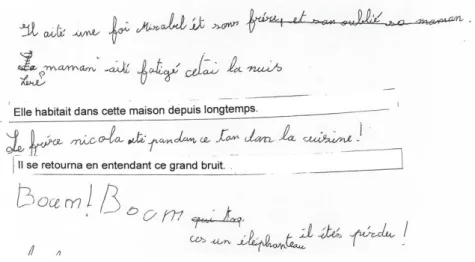 Il aité une foi Mirabel ét sons frére, et san oublié sa maman.
La maman aité fatigé cétai la nuis
Leré
Elle habitait dans cette maison depuis longtemps.
Le frére nicola été pandan ce tan dans la cuisine!
Il se retourna en entendant ce grand bruit.
Boum! Boum qui taq
ces un éléphanteau il étés pérdu!